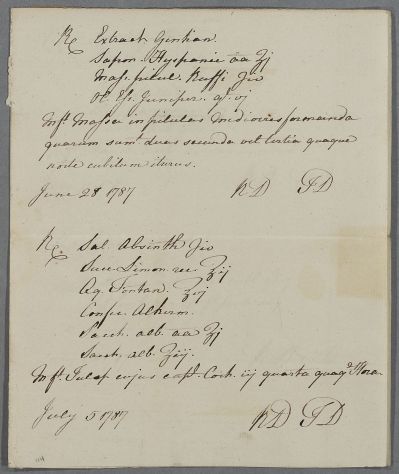 ℞ Extract Gentian
Sapon. Hyspanic aa ʒj
Mass. pilul. Ruffi ʒiſ
Ol. Eſs. Juniper. gt. vj
Mft. Massa in pilulas mediocres formanda
quarum sumt. duas secunda vel tertia quaque
nocte cubitum iturus.
June 28 1787 RD TD
℞ Sal. Absinth ʒiſ
Succ. Limon. rec. ℥ij
Aq. Fontan. ℥vj
Confec. Alkerm.
Sacch. alb. aa ʒj
Sacch. alb. ʒij.
Mft. Julap cujus cap. Coch. iij quarta quaq. Hora
July 5 1787 RD TD